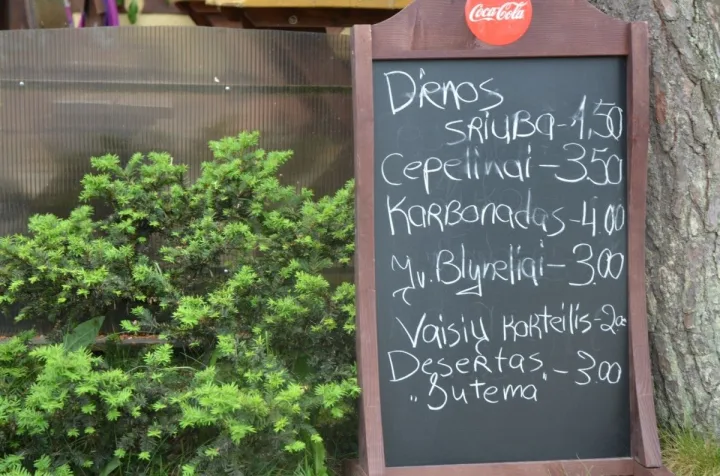 Coca-Cola
Dienos
sriuba - 1,50
Cepelinai - 3.50
Karbonadas - 4.00
Įv. Blyneliai - 3.00
Vaisių kokteilis - 2.00
Desertas - 3.00
„Sutema"